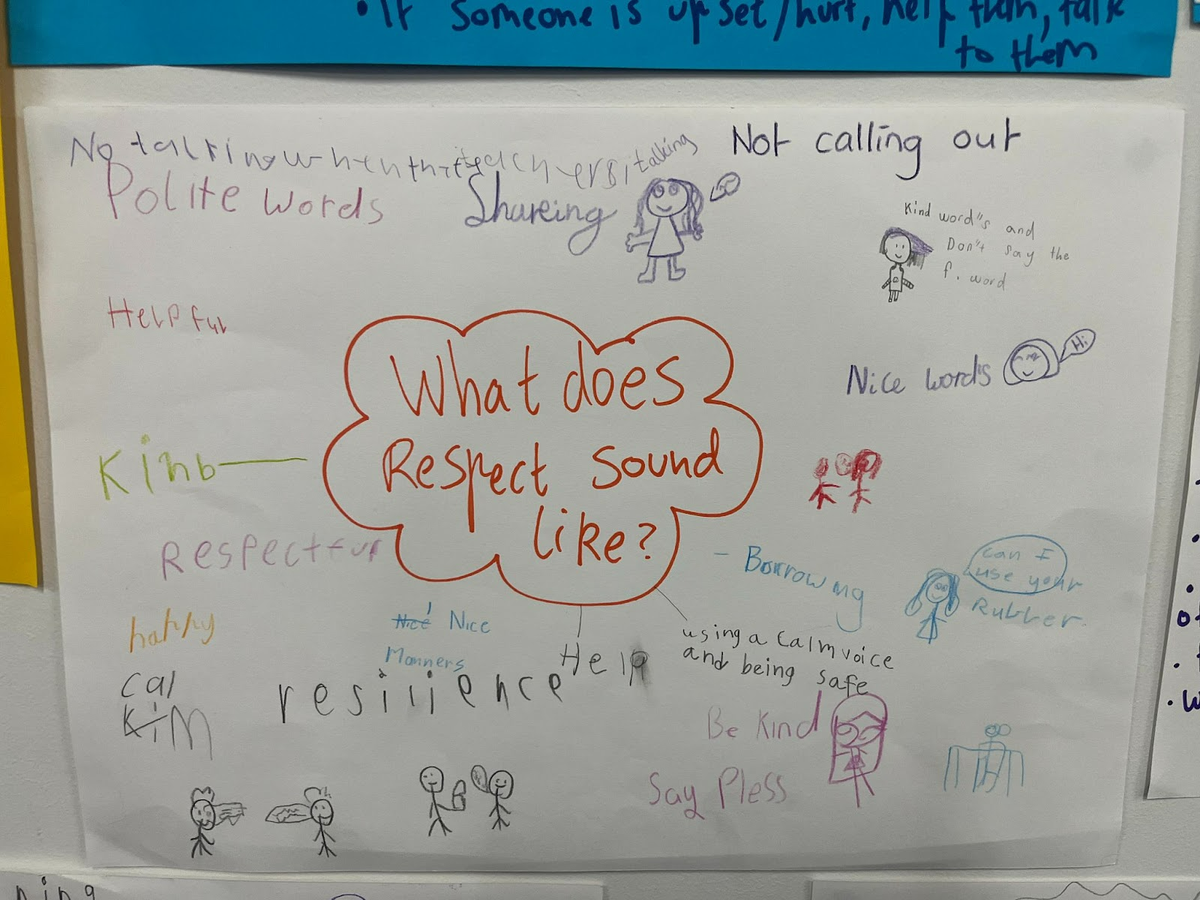 • If someone is upset/hurt, help them, talk
to them
No talking when the teachers is talking
Not calling out
Polite words
Shareing
Kind word"s and
Don"t say the
f. word
Helpful
Nice words
Hi
What does
Respect sound
like?
Kinb
Respectful
- Borrowing
can I
use your
Rubber.
happy
Nice
Manners
Help
using a calm voice
and being safe
cal
Kim
resilience
Be Kind
Say Pless
ning